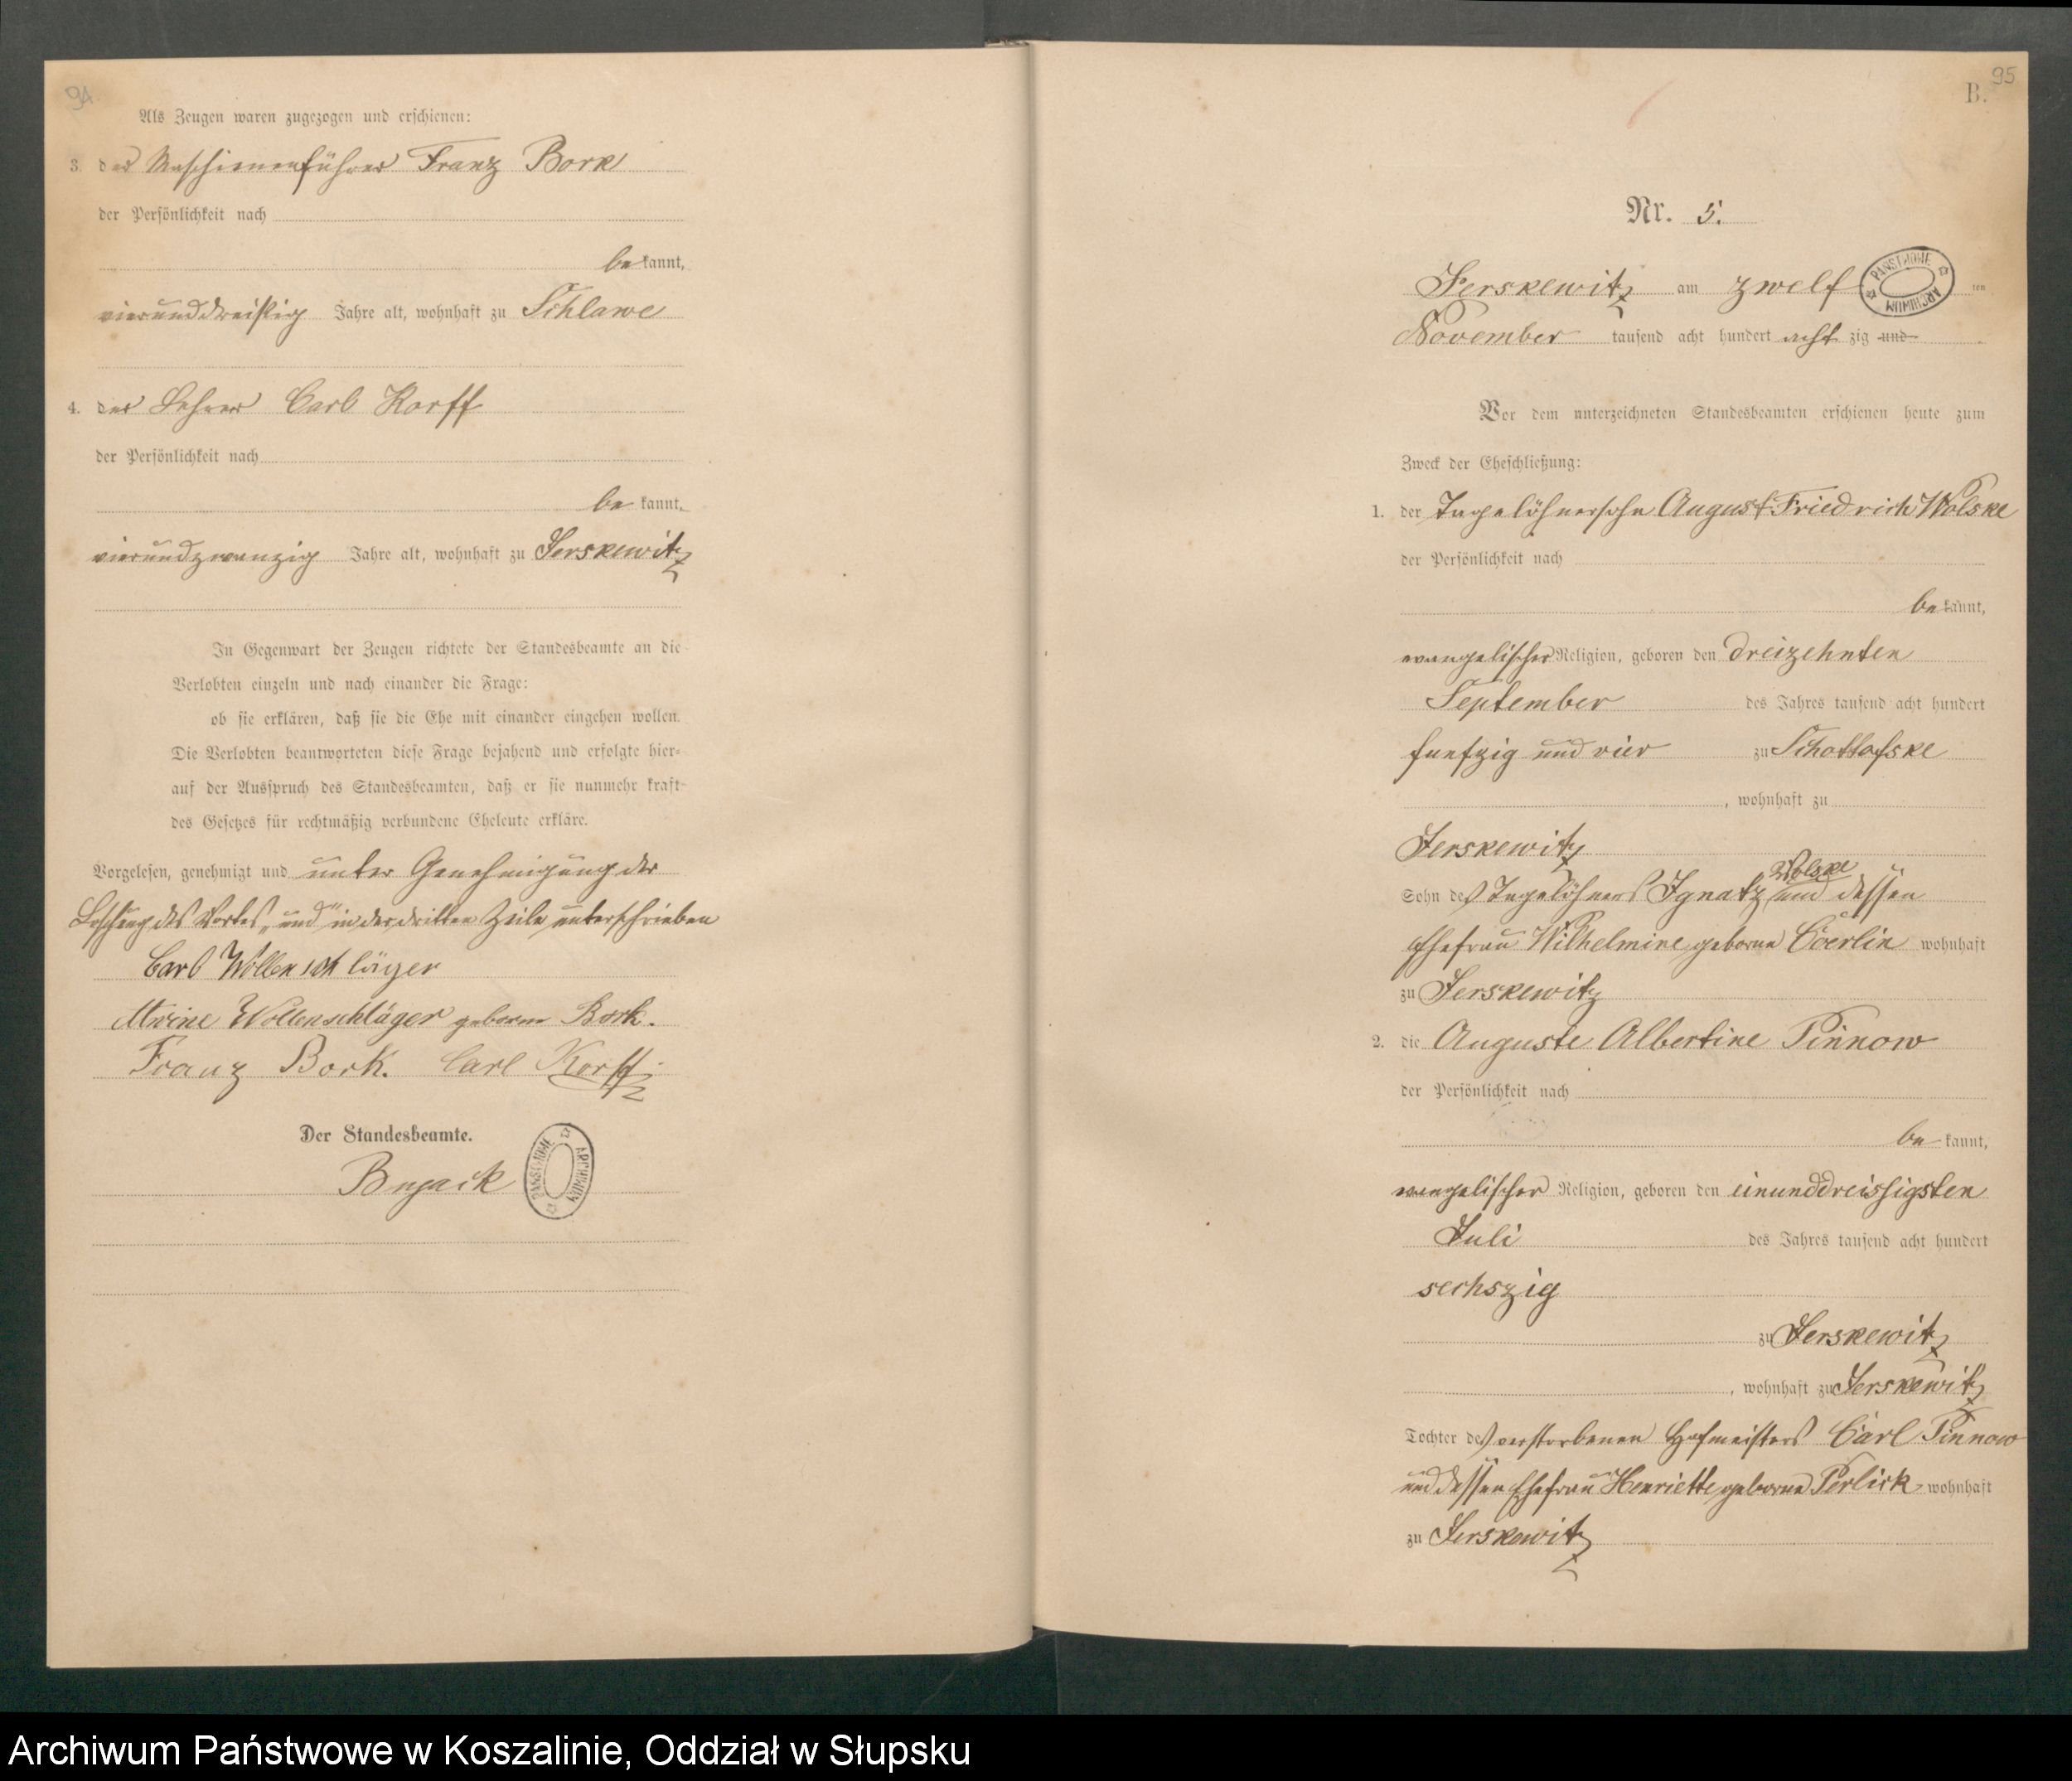 94.
Als Zeugen waren zugezogen und erschienen:
3. der Maschienenführer Franz Bork
der Persönlichkeit nach
be kannt,
vierunddreißig Jahre alt, wohnhaft zu Schlawe
4. der Lehrer Carl Korff
der Persönlichkeit nach
be kannt,
vierundzwanzig Jahre alt, wohnhaft zu Jerskewitz
In Gegenwart der Zeugen richtete der Standesbeamte an die
Verlobten einzeln und nach einander die Frage:
ob sie erklären, daß sie die Ehe mit einander eingehen wollen.
Die Verlobten beantworteten diese Frage bejahend und erfolgte hier-
auf der Ausspruch des Standesbeamten, daß er sie nunmehr kraft
des Gesetzes für rechtmäßig verbundene Eheleute erkläre.
Vorgelesen, genehmigt und unter Genehmigung der
Löschung des Wortes „und" in der dritten Zeile unterschrieben
Carl Wollenschläger
Wollenschläger geborne Bork.
Franz Bork. Carl Korff
Der Standesbeamte.
PANSTWOWE ARCHIWUM
95
B.
Nr. 5.
Jerskewitz am zwelf ten
PANSTWOWE ARCHIWUM
November tausend acht hundert acht zig und
Vor dem unterzeichneten Standesbeamten erschienen heute zum
Zweck der Eheschließung:
1. der Tagelöhnersohn August Friedrich Wolske
der Persönlichkeit nach
be kannt,
evangelischer Religion, geboren den dreizehnten
September des Jahres tausend acht hundert
funfzig und vier zu Schottofske
, wohnhaft zu
Jerskewitz
Wolske
Sohn des Tagelöhners Ignatz und dessen
Ehefrau Wilhelmine geborne Coerlin wohnhaft
zu Jerskewitz
2. die Auguste Albertine Pinnow
der Persönlichkeit nach
be kannt,
evangelischer Religion, geboren den einunddreissigsten
Juli des Jahres tausend acht hundert
sechszig
zu Jerskewitz
, wohnhaft zu Jerskewitz
Tochter des verstorbenen Hofmeisters Carl Pinnow
und dessen Ehefrau Henriette geborne Perlick wohnhaft
zu Jerskewitz
Archiwum Państwowe w Koszalinie, Oddział w Słupsku